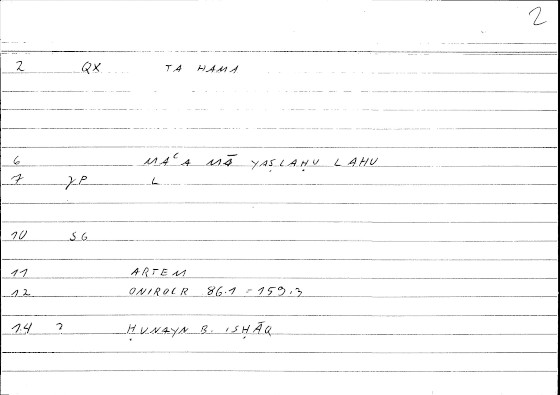 2
2 QX TA HAMA
6 MAʿA MĀ YAṢLAḤU LAHU
7 γP L
10 SG
11 ARTEM
12 ONIROCR 86.1 = 159.3
14 ? ḤUNAYN B. ISḤĀQ